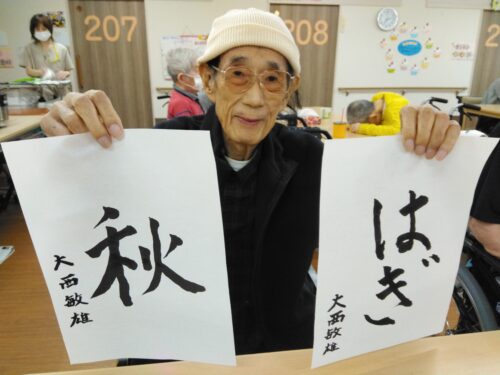 207
208
秋
大西敏雄
はぎ
大西敏雄